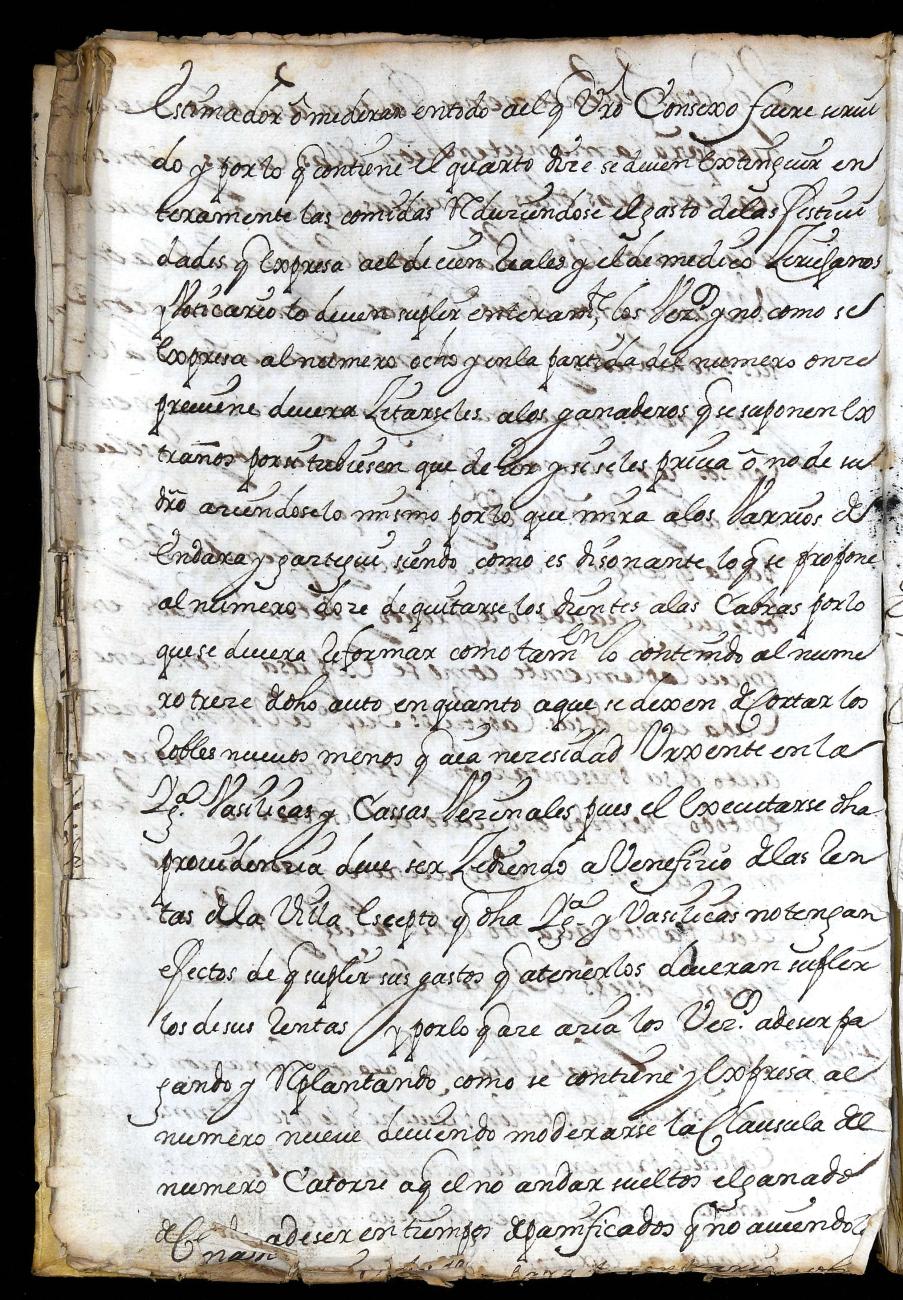 estimador ô mederar entodo ael q̃ Vrô Consexo fuere servi
do y porlo q̃ contiene el quarto dize se deven extinguir en
teramente las comidas Rduziendose el gasto delas Festivi
dades q̃ expresa ael de cien Reales y el de medico Zirujanos
y Voticario lo deven suplir enteramte los Vezos y no como se
expresa al numero ocho y en la partida del numero onze
previene devera Zitarseles alos ganaderos q̃ se suponen ex
traños por si tubiesen que dezir y siseles priva ô no de su
dro aziendoselo mismo porlo que mira alos Varrios de
Endara y gaztegui siendo como es disonante lo q̃ se propone
al numero doze de quitarse los dientes alas Cabras porlo
que se devera Reformar como tamen lo contenido al nume
ro treze de dho auto en quanto aque se dexen de Cortar los
Robles nuevos menos q̃ aia nezesidad Urxente en la
Yga Vasilicas y Cassas Vezinales pues el executarse dha
providenzia deve ser Zediendo a Venefizio delas Ren
tas de la Villa escepto q̃ dha Yga y Vasilicas no tengan
efectos de q̃ suplir sus gastos q̃ atenerlos deveran suplir
los de sus Rentas y porlo q̃ aze azia los Vezos adeser pa
gando y Rplantando como se contiene y expresa al
numero nueve deviendo moderarse la Clausula del
numero Catorze aq̃ el no andar sueltos el ganado
de C adeser en tiempos de panificados q̃ no aviendolo